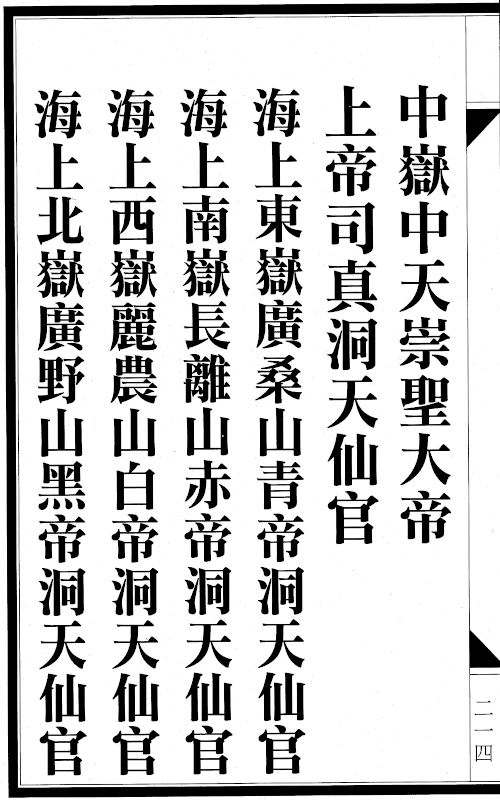 中嶽中天崇聖大帝
上帝司真洞天仙官
海上東嶽廣桑山青帝洞天仙官
海上南嶽長離山赤帝洞天仙官
海上西嶽麗農山白帝洞天仙官
海上北嶽廣野山黑帝洞天仙官
二一四